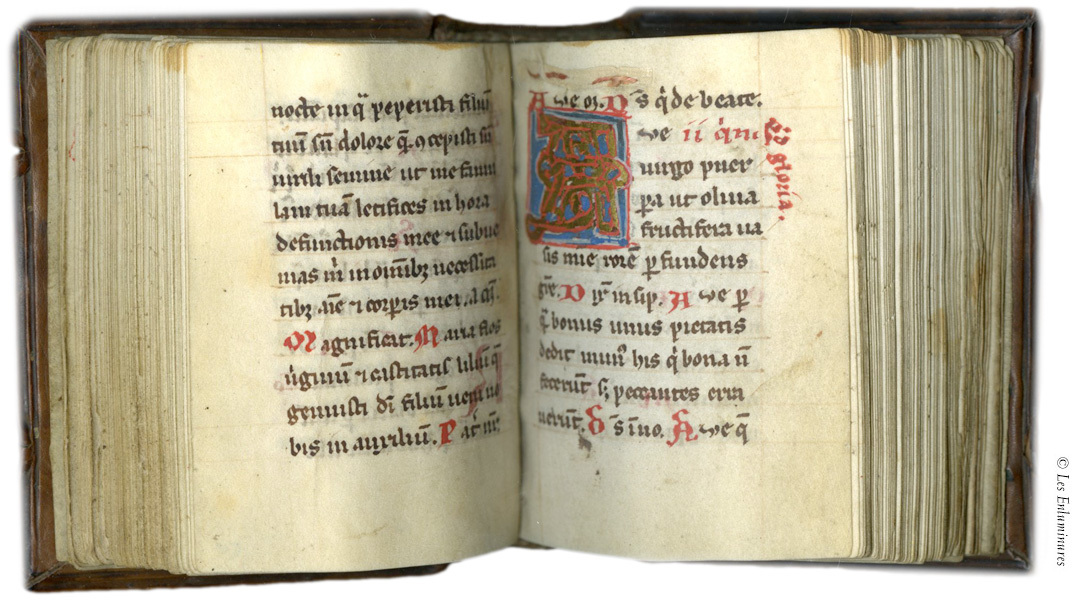 nocte in q̄ peperisti filiū
tuū sn̄ dolore q̄ ꝯcepisti sn̄
uirili semine ut me famu
lam tuā letifices in hora
defunctionis mee ⁊ subue
nias m̄ in omībꝫ necessita
tibꝫ aīe ⁊ corꝑis mei. a q̄.
Magnificat. Maria flos
uirginū ⁊ castitatis liliū q̄
genuisti dī filiū ueni no
bis in auxiliū. Pat̄ nr̄
Aue or. D s̄ q̄ de beate.
Aue ii
uirgo puer
ꝑa ut oliua
fructifera ua
sis mīe rorē ꝑfundens
gr̄e. D in sip. Aue ꝑ
q̄ bonus unus pietatis
dedit mun̄ his q̄ bona n̄
fecerūt sꝫ peccantes erra
uerūt. D s̄ ī uo. Aue q̄
gloria.
© Les Enluminures